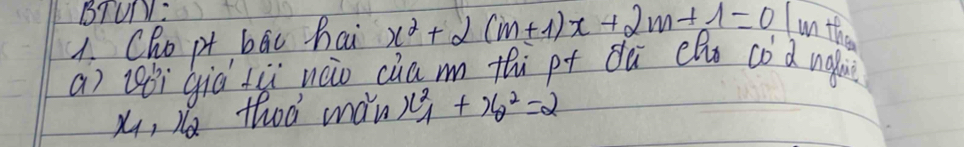 BTVN:
1. Cho pt bậc hai x² + 2(m+1)x + 2m + 1 = 0 (m
a) Với giá trị nào của m thì pt đã cho có 2
x₁, x₂ thoả mãn x₁² + x₂² = 2